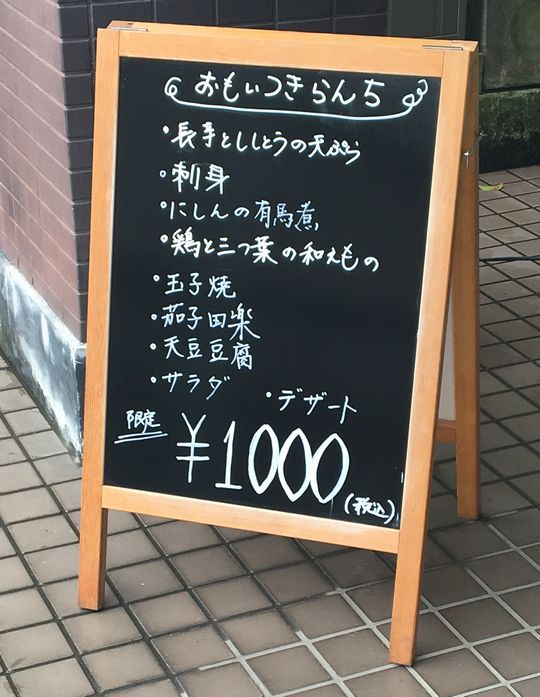 おもいつきらんち
・長芋とししとうの天ぷら
・刺身
・にしんの有馬煮
・鶏と三つ葉の和えもの
・玉子焼
・茄子田楽
・天豆豆腐
・サラダ ・デザート
限定 ¥1000 (税込)